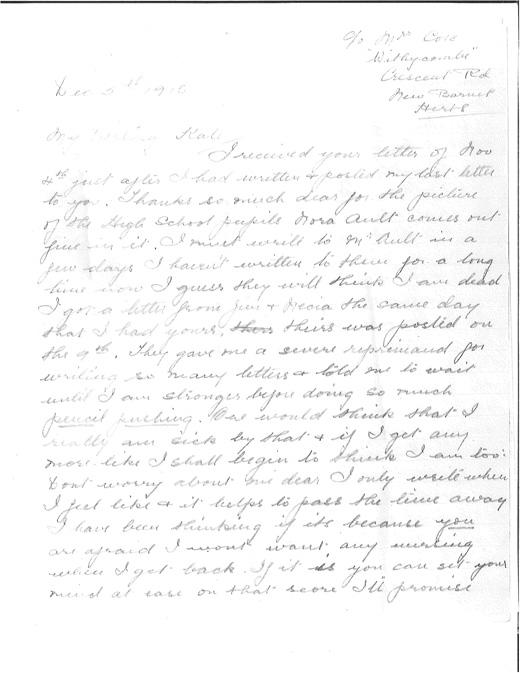 c/o Mrs Cole
"Withycombe"
Crescent Rd
New Barnet
Herts
Dec 5th 191
My Darling Kate
I received your letter of Nov
4th just after I had written & posted my last letter
to you. Thanks so much dear for the picture
of the High School pupils Nora Ault comes out
fine in it. I must write to Mr Ault in a
few days I haven't written to them for a long
time now I guess they will think I am dead
I got a letter from Jim & the same day
that I had yours, theirs was posted on
the 9th. They gave me a severe reprimand for
writing so many letters & told me to wait
until I am stronger before doing so much
pencil pushing. One would think that I
really am sick by that & if I get any
more like I shall begin to think I am too.
Dont worry about me dear I only write when
I feel like & it helps to pass the time away
I have been thinking if its because you
are afraid I wont want any nursing
when I get back. If it is you can set your
mind at ease on that score I'll promise